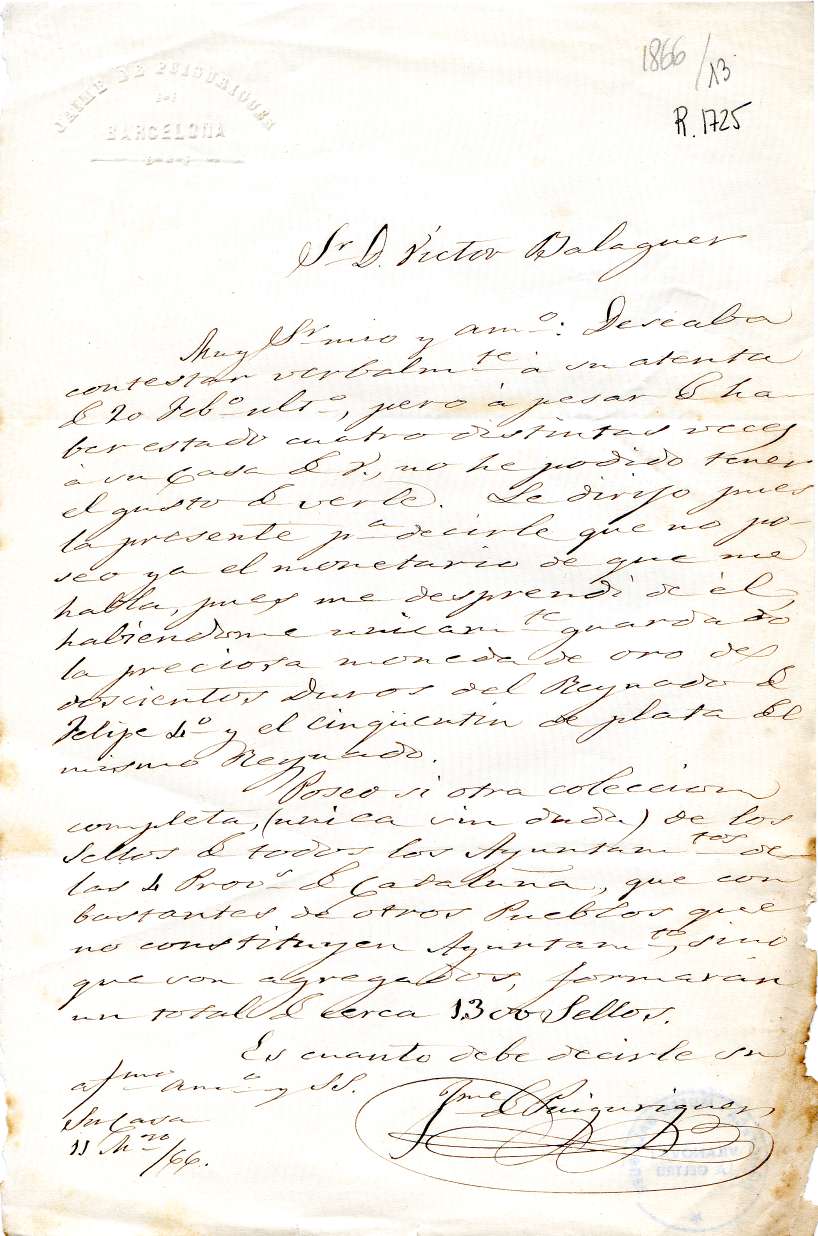 JAIME DE PUIGURIGUER
BARCELONA
1866/13
R. 1725
Sr D. Víctor Balaguer
Muy Sr mio y amº: Deseaba
contestar verbalmte à su atenta
de 20 Febº ultº, pero à pesar de ha-
ber estado cuatro distintas veces
à su Casa de V., no he podido tener
el gusto de verle. Le dirijo pues
la presente pª decirle que no po-
seo ya el monetario de que me
habla, pues me desprendí de él,
habiendome unicamte guardado
la preciosa moneda de oro de
doscientos Duros del Reynado de
Felipe 4º y el cinqüentin de plata del
mismo Reynado.
Poseo si otra coleccion
completa, (unica sin duda) de los
Sellos de todos los Ayuntamtos de
las 4 Provs de Cataluña, que con
bastantes de otros Pueblos que
no constituyen Ayuntamto, sino
que son agregados, formarán
un total de cerca 1300 Sellos.
Es cuanto debe decirle su
afmo amº y SS.
Jme de Puiguriguer
Su Casa
11 Mzo/66.